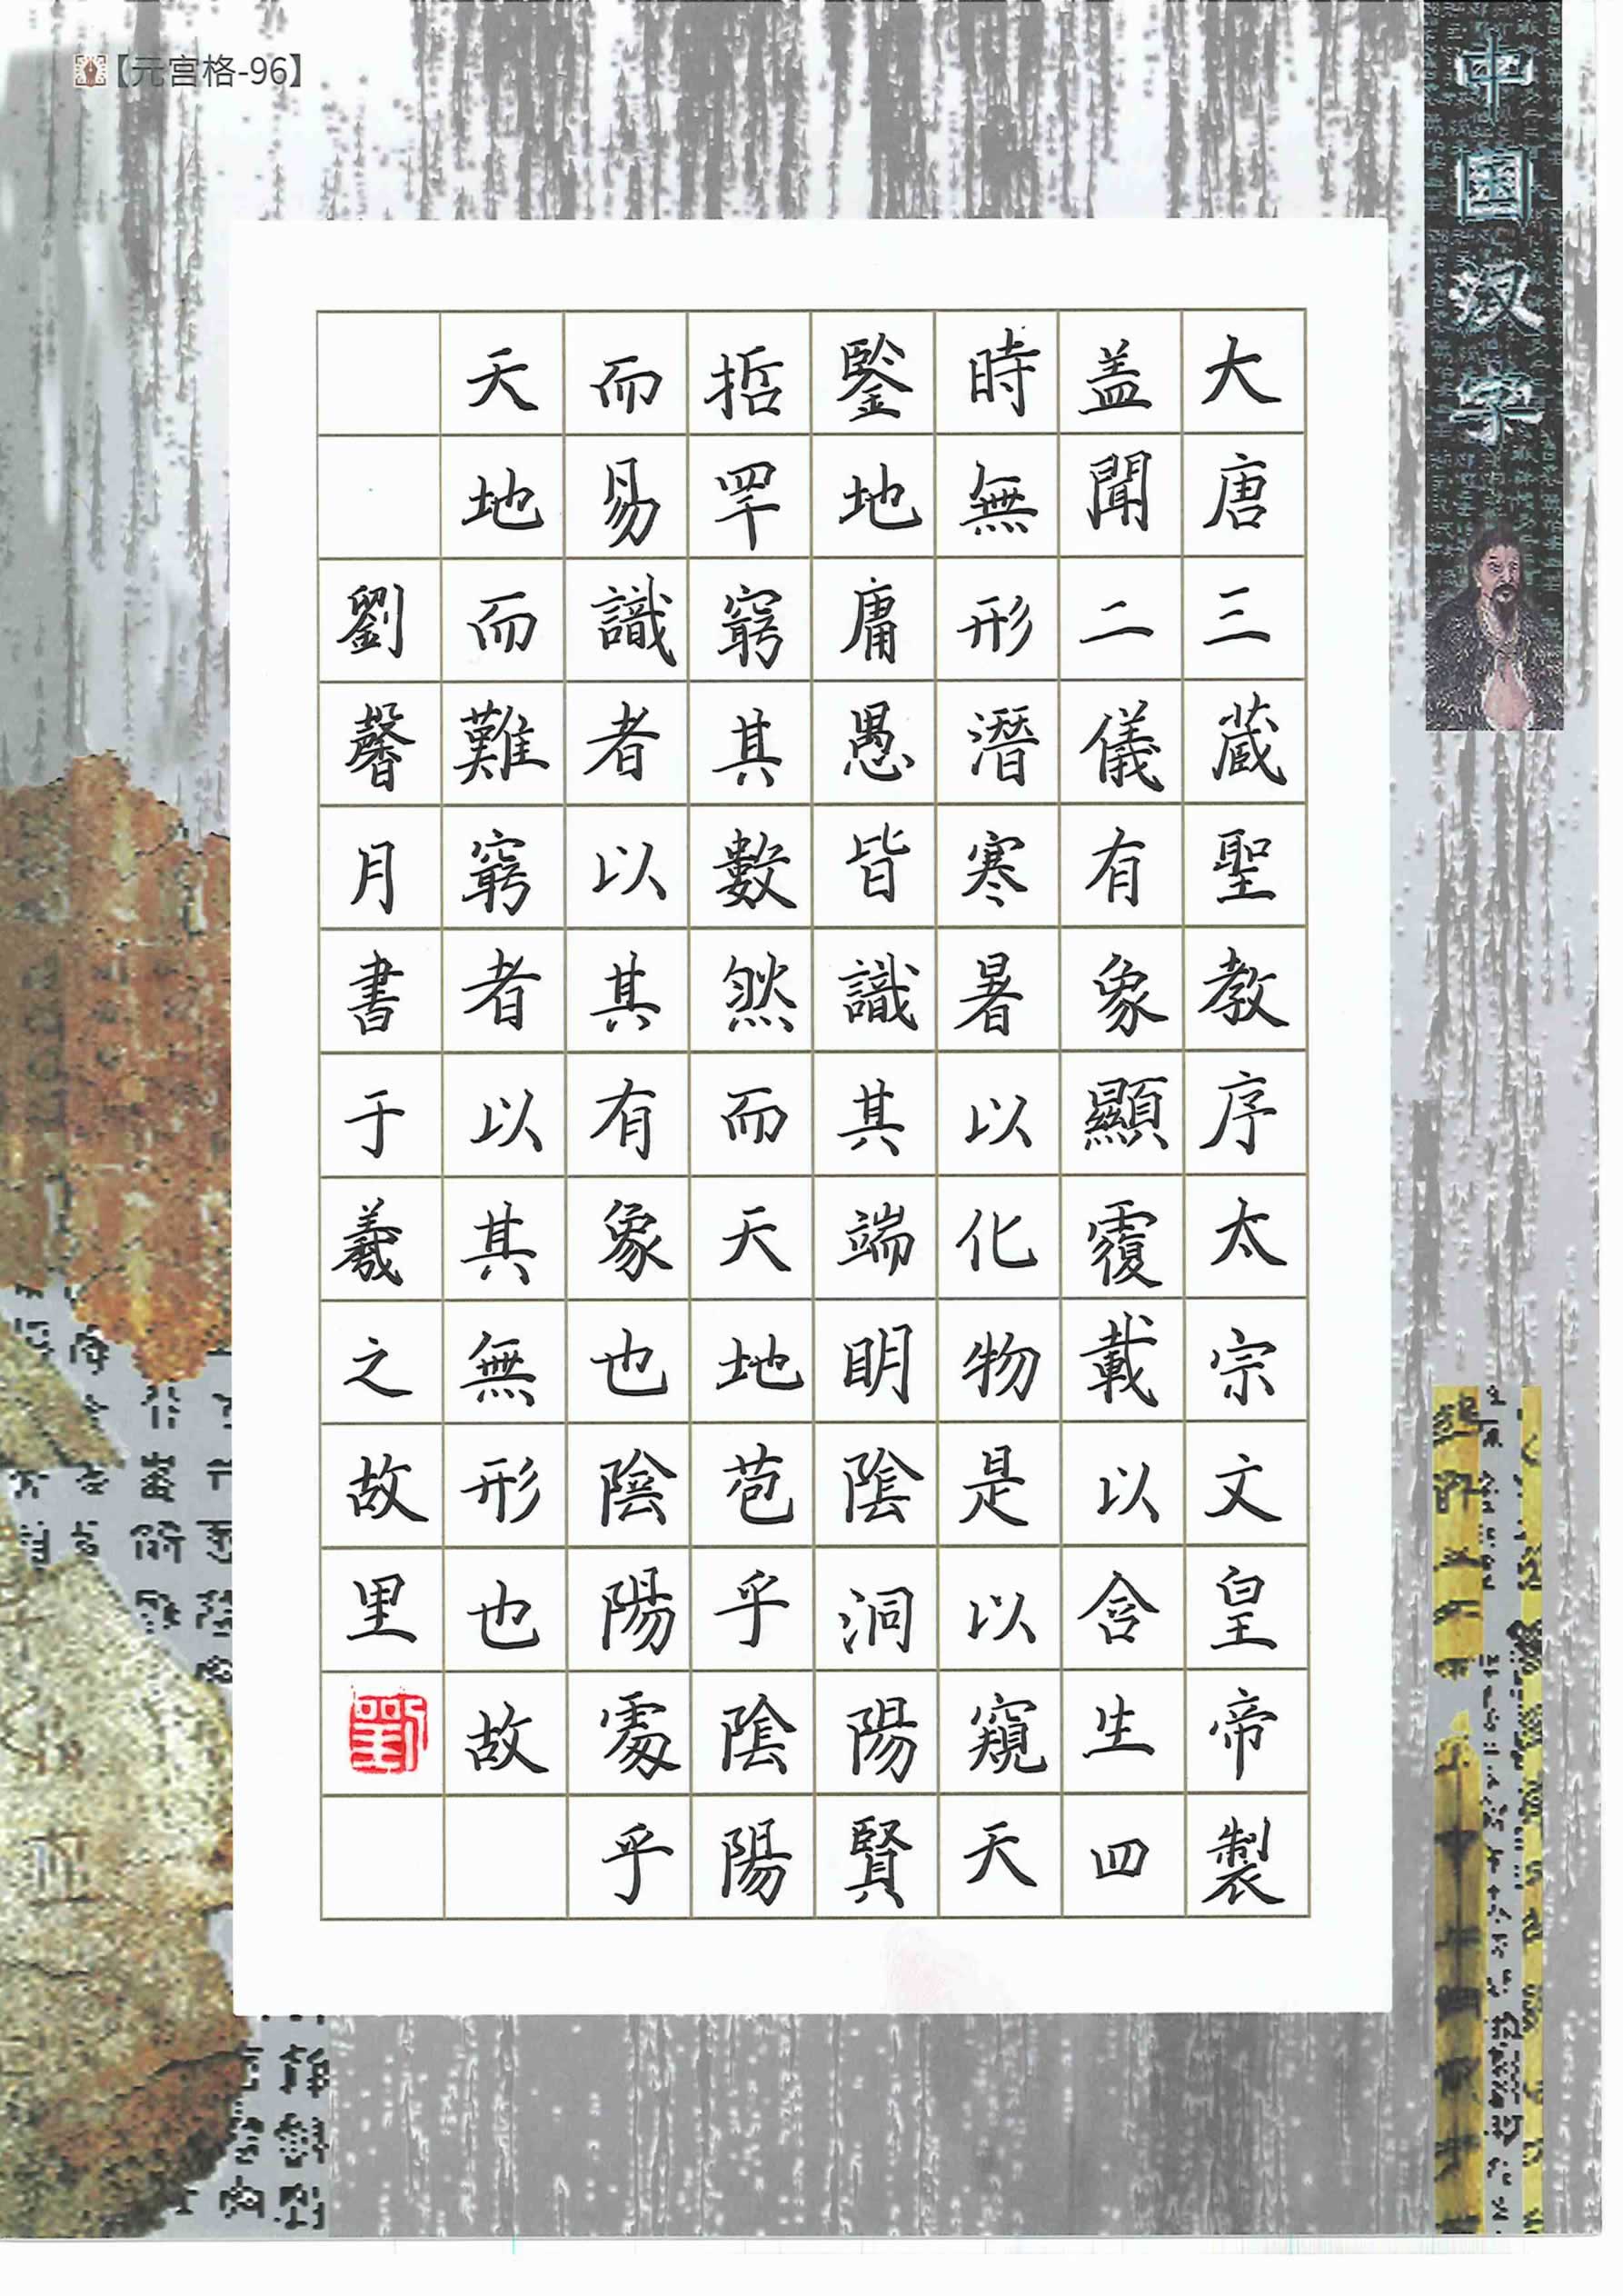 【元宫格-96】
中国汉字
大唐三蔵聖教序太宗文皇帝製
盖聞二儀有象顯覆載以含生四
時無形潛寒暑以化物是以窺天
鑒地庸愚皆識其端明陰洞陽賢
哲罕窮其數然而天地苞乎陰陽
而易識者以其有象也陰陽處乎
天地而難窮者以其無形也故
劉馨月書于羲之故里
劉